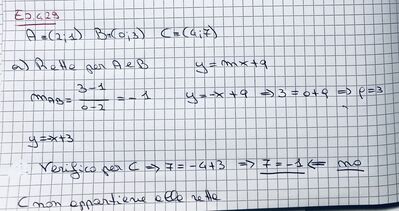 Es 429
A=(2;1) B=(0;3) C=(4;7)
a) Rette per A e B y=mx+q
m_AB = 3-1/0-2 = -1 y=-x+q ⇒ 3=0+q ⇒ q=3
y=-x+3
Verifico per C ⇒ 7=-4+3 ⇒ 7=-1 ⇐ no
C non appartiene alla retta